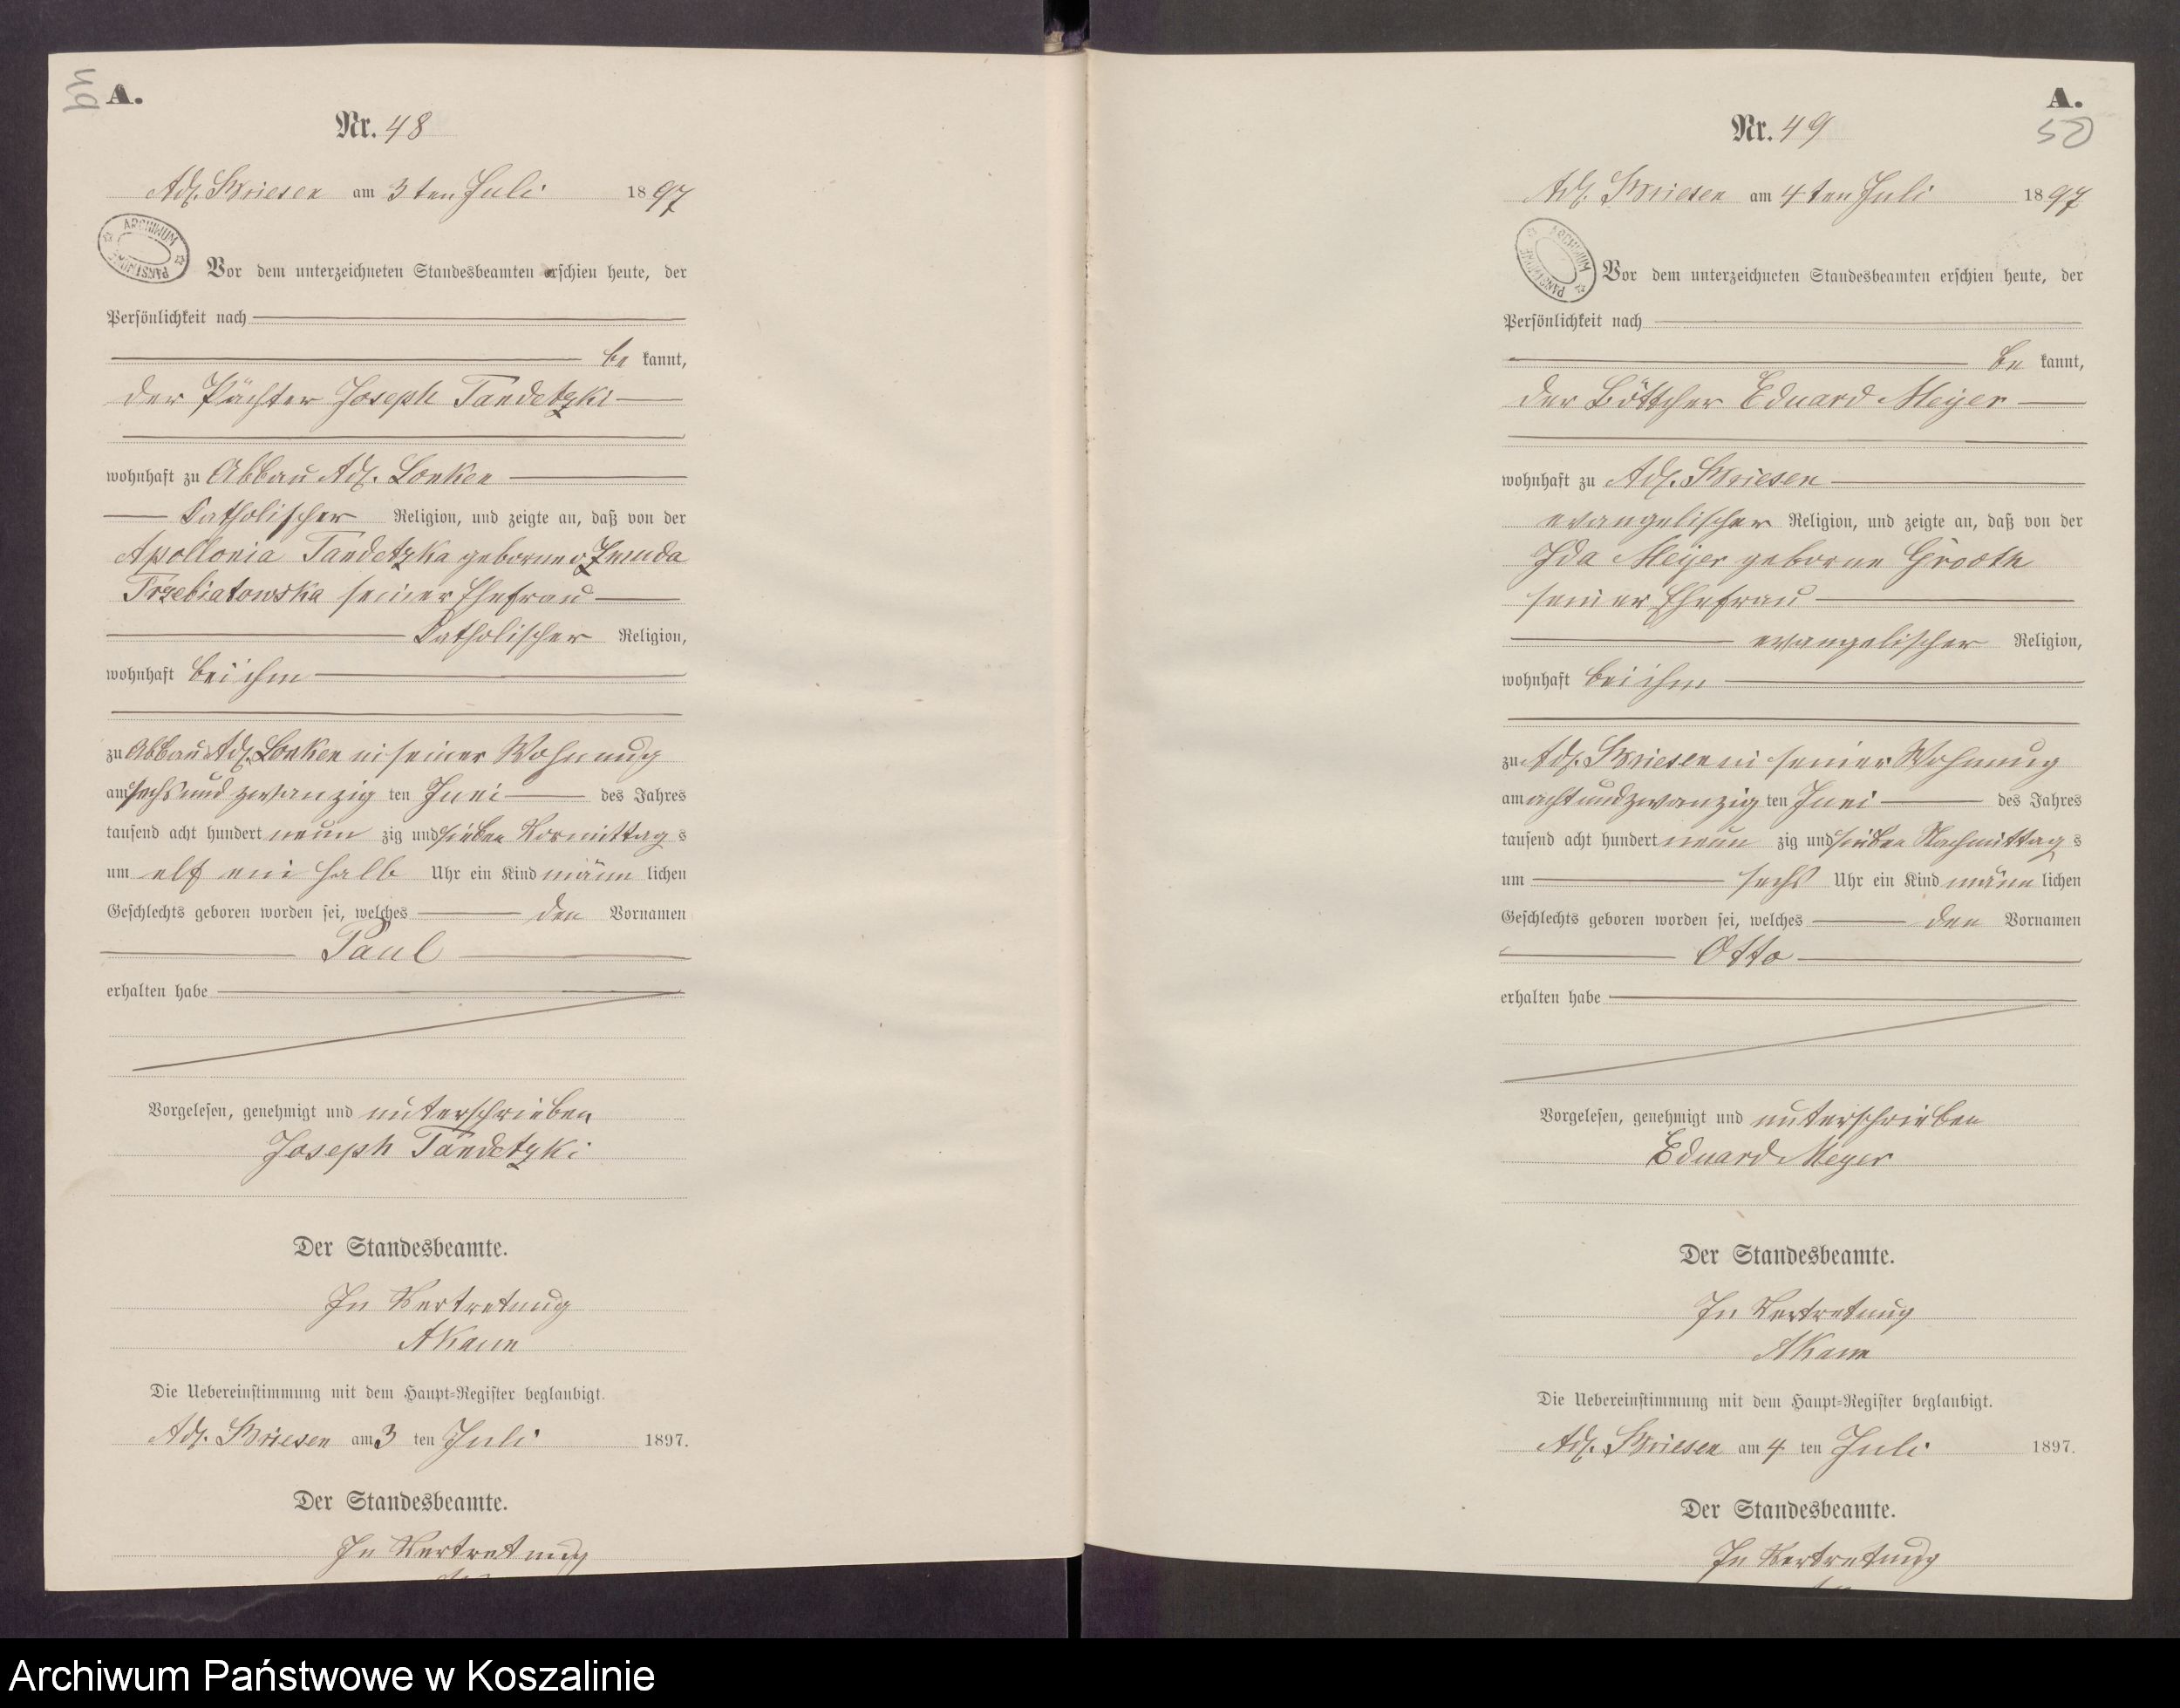 49
A.
Nr. 48
Adl. Briesen am 3 ten Juli 1897
ARCHIWUM PAŃSTWOWE
Vor dem unterzeichneten Standesbeamten erschien heute, der
Persönlichkeit nach
be kannt,
der Pächter Joseph Tandetzki
wohnhaft zu Abbau Adl. Lonken
Catholischer Religion, und zeigte an, daß von der
Apollonia Tandetzka geborne v Zmuda
Trzebiatowska seiner Ehefrau
Catholischer Religion,
wohnhaft bei ihm
zu Abbau Adl. Lonken in seiner Wohnung
am sechs und zwanzig ten Juni des Jahres
tausend acht hundert neun zig und sieben Vormittag s
um elf ein halb Uhr ein Kind männ lichen
Geschlechts geboren worden sei, welches den Vornamen
Paul
erhalten habe
Vorgelesen, genehmigt und unterschrieben
Joseph Tandetzki
Der Standesbeamte.
In Vertretung
AKann
Die Uebereinstimmung mit dem Haupt-Register beglaubigt.
Adl. Briesen am 3 ten Juli 1897.
Der Standesbeamte.
In Vertretung
A.
50
Nr. 49
Adl. Briesen am 4 ten Juli 1897
ARCHIWUM PAŃSTWOWE
Vor dem unterzeichneten Standesbeamten erschien heute, der
Persönlichkeit nach
be kannt,
der Böttcher Eduard Meyer
wohnhaft zu Adl. Briesen
evangelischer Religion, und zeigte an, daß von der
Ida Meyer geborne Grooth
seiner Ehefrau
evangelischer Religion,
wohnhaft bei ihm
zu Adl. Briesen in seiner Wohnung
am acht und zwanzig ten Juni des Jahres
tausend acht hundert neun zig und sieben Nachmittag s
um sechs Uhr ein Kind männ lichen
Geschlechts geboren worden sei, welches den Vornamen
Otto
erhalten habe
Vorgelesen, genehmigt und unterschrieben
Eduard Meyer
Der Standesbeamte.
In Vertretung
AKann
Die Uebereinstimmung mit dem Haupt-Register beglaubigt.
Adl. Briesen am 4 ten Juli 1897.
Der Standesbeamte.
In Vertretung
Archiwum Państwowe w Koszalinie